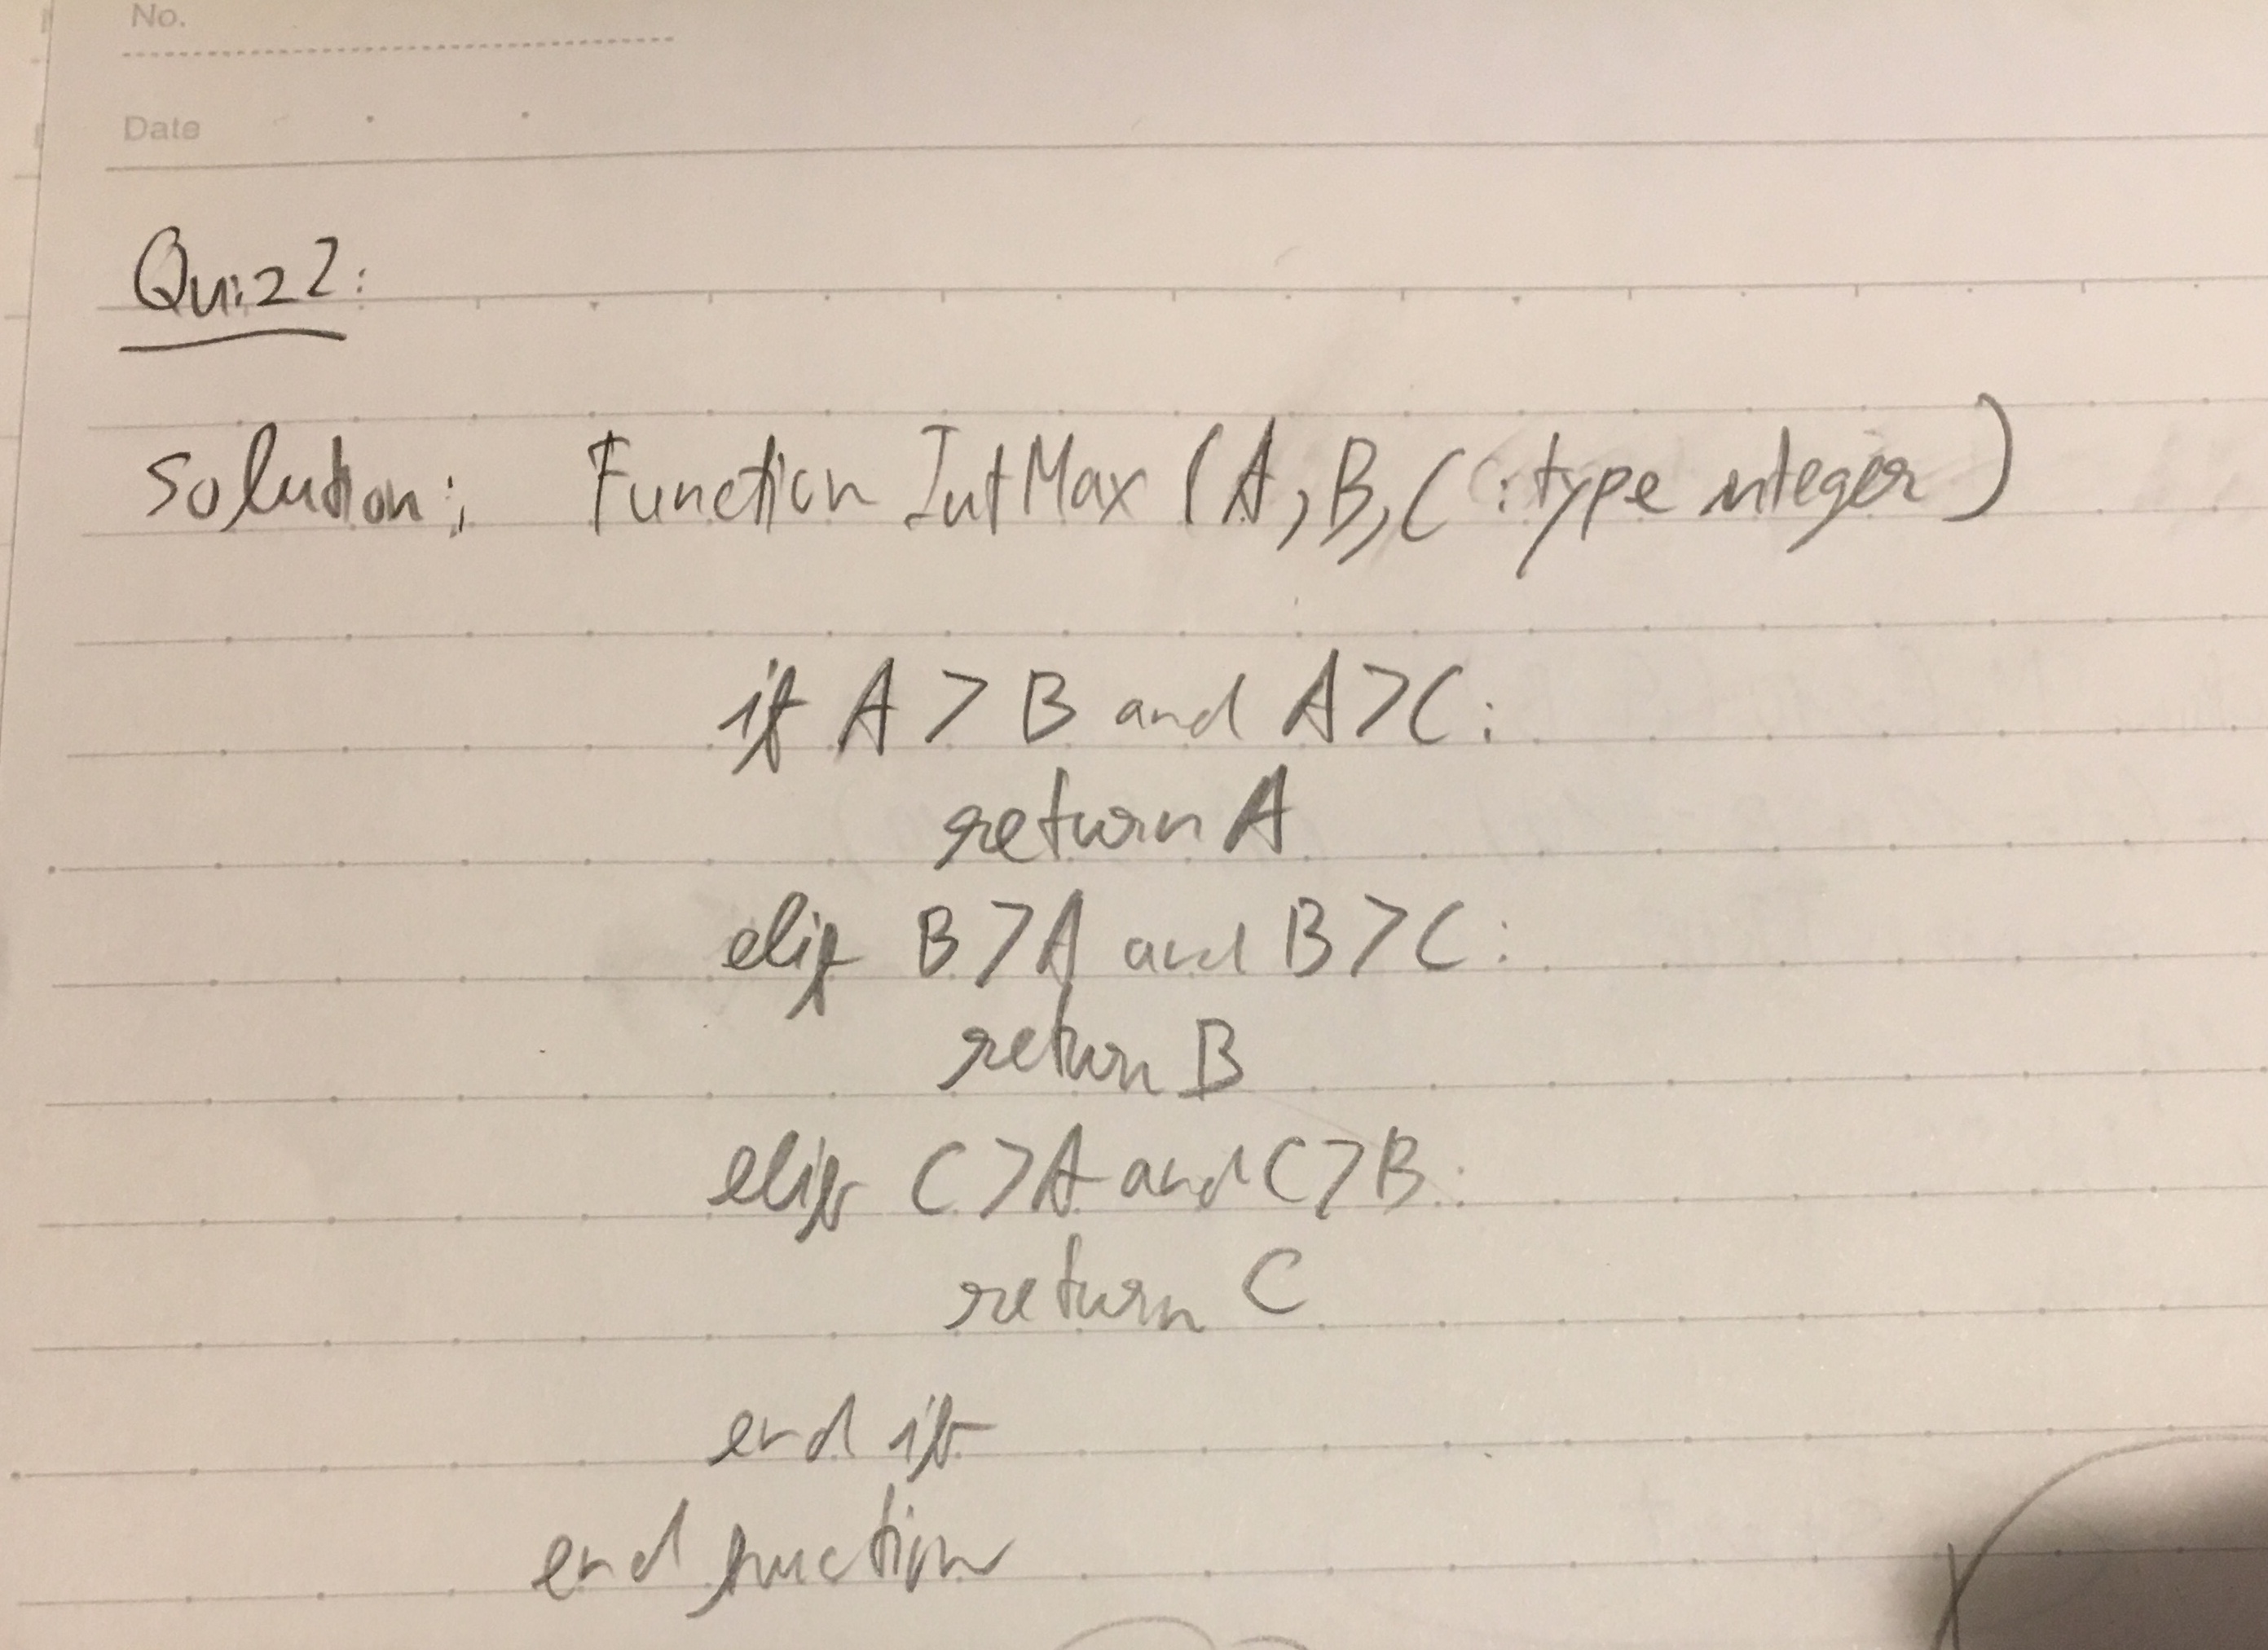 No.
Date
Quiz 2:
Solution: Function IntMax (A, B, C : type integer)
if A > B and A > C:
return A
elif B > A and B > C:
return B
elif C > A and C > B:
return C
end if
end function